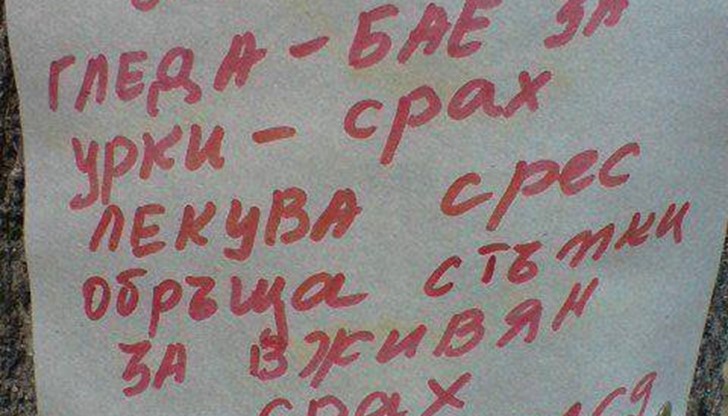 ГЛЕДА - БАЕ ЗА
УРКИ - срах
ЛЕКУВА срес
обръща стъпки
ЗА ВЖИВЯН
срах